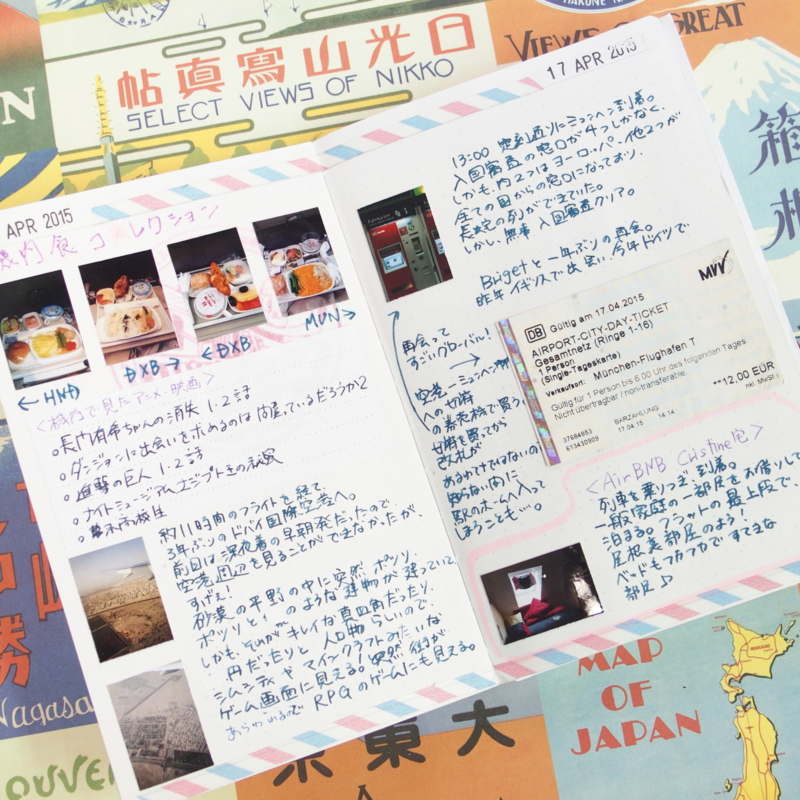 日光山寫真帖
SELECT VIEWS OF NIKKO
VIEWS OF GREAT
箱
APR 2015
機内食コレクション
← HND
DXB →
← DXB
MUN →
<機内で見たアニメ・映画>
長門有希ちゃんの消失 1.2話
ダンジョンに出会いを求めるのは間違っているだろうか2
進撃の巨人 1.2話
ナイトミュージアム エジプト王の秘密
幕末高校生
約11時間のフライトを経て、
3年ぶりのドバイ国際空港へ。
前回は深夜着の早朝発だったので、
空港周辺を見ることができなかったが、
すげぇ!
砂漠の平野の中に突然、ポツリ、
ポツリと、 のような建物が建っていて、
しかも、それがキレイな真四角だったり、
円だったりと人工物らしいので、
シムシティやマインクラフトみたいな
ゲーム画面に見える!突然、街が
あらわれるので RPGのゲームにも見える。
17 APR 2015
13:00 定刻通りにミュンヘンへ到着。
入国審査の窓口が4つしかなく、
しかも、内2つはヨーロッパ、他2つが
全ての国からの窓口になっており、
長蛇の列ができていた。
しかし、無事入国審査クリア。
Bligetと一年ぶりの再会。
昨年イギリスで出会い、今年ドイツで
再会って
すごいグローバル!
空港→ミュンヘン
への切符
の券売機で買う。
切符を買ってから
改札が
あるわけではないので
知らない内に
駅のホームへ入って
しまうことも…。
DB Gültig am 17.04.2015
MVV
AIRPORT-CITY-DAY-TICKET
Gesamtnetz (Ringe 1-16)
1 Person
(Single-Tageskarte)
Verkaufsort: München-Flughafen T
Gültig für 1 Person bis 6 Uhr des folgenden Tages
Nicht übertragbar / non-transferable
**12,00 EUR
inkl. MwSt.)
37684853
613430909
BARZAHLUNG
17.04.15 14:14
<AirBNB Cristine宅>
列車を乗りつぎ、到着。
一般家庭の一部屋をお借りして
泊まる。フラットの最上段で、
屋根裏部屋のよう!
ベッドもフカフカですてきな
部屋♪
Nagasa
MAP
OF
JAPAN
大東京